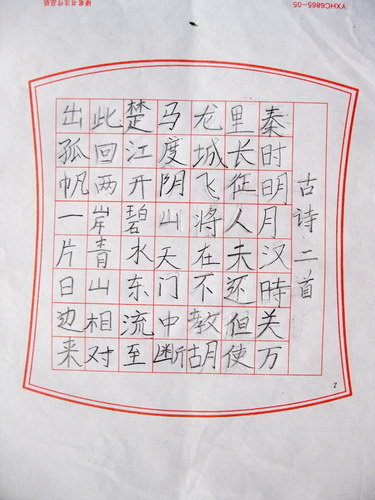 古诗二首
秦时明月汉時关万
里长征人未还但使
龙城飞将在不教胡
马度阴山天门中断
楚江开碧水东流至
此回两岸青山相对
出孤帆一片日边来
2
YXHC6865-05